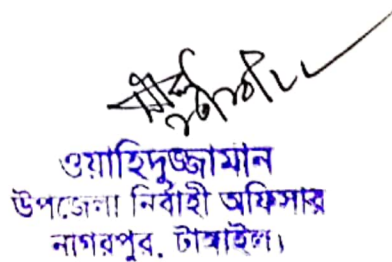 ওয়াহিদুজ্জামান
উপজেলা নির্বাহী অফিসার
নাগরপুর, টাঙ্গাইল।